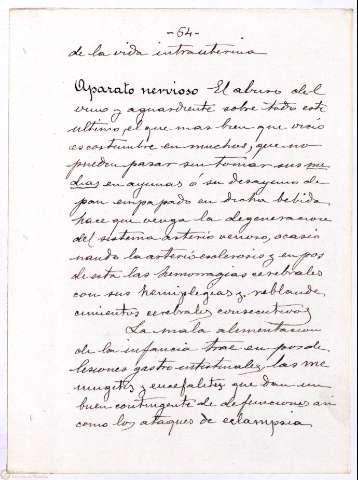 -54-
de la vida intrauterina
Aparato nervioso - El abuso del
vino y aguardiente sobre todo este
ultimo, el que mas bien que vicio
es costumbre en muchos, que no
pueden pasar sin tomar sus me
dias en ayunas ó su desayuno de
pan empapado en dicha bebida
hace que venga la degeneracion
del sistema arterio venoso, ocasio
nando la arterio esclerosis y en pos
de esta las hemorragias cerebrales
con sus hemiplegias y reblande
cimientos cerebrales consecutivos
La mala alimentacion
de la infancia trae en pos de
lesiones gastro intestinales, las me
ningitis y encefalitis que dan un
buen contingente de defunciones asi
como los ataques de eclampsia